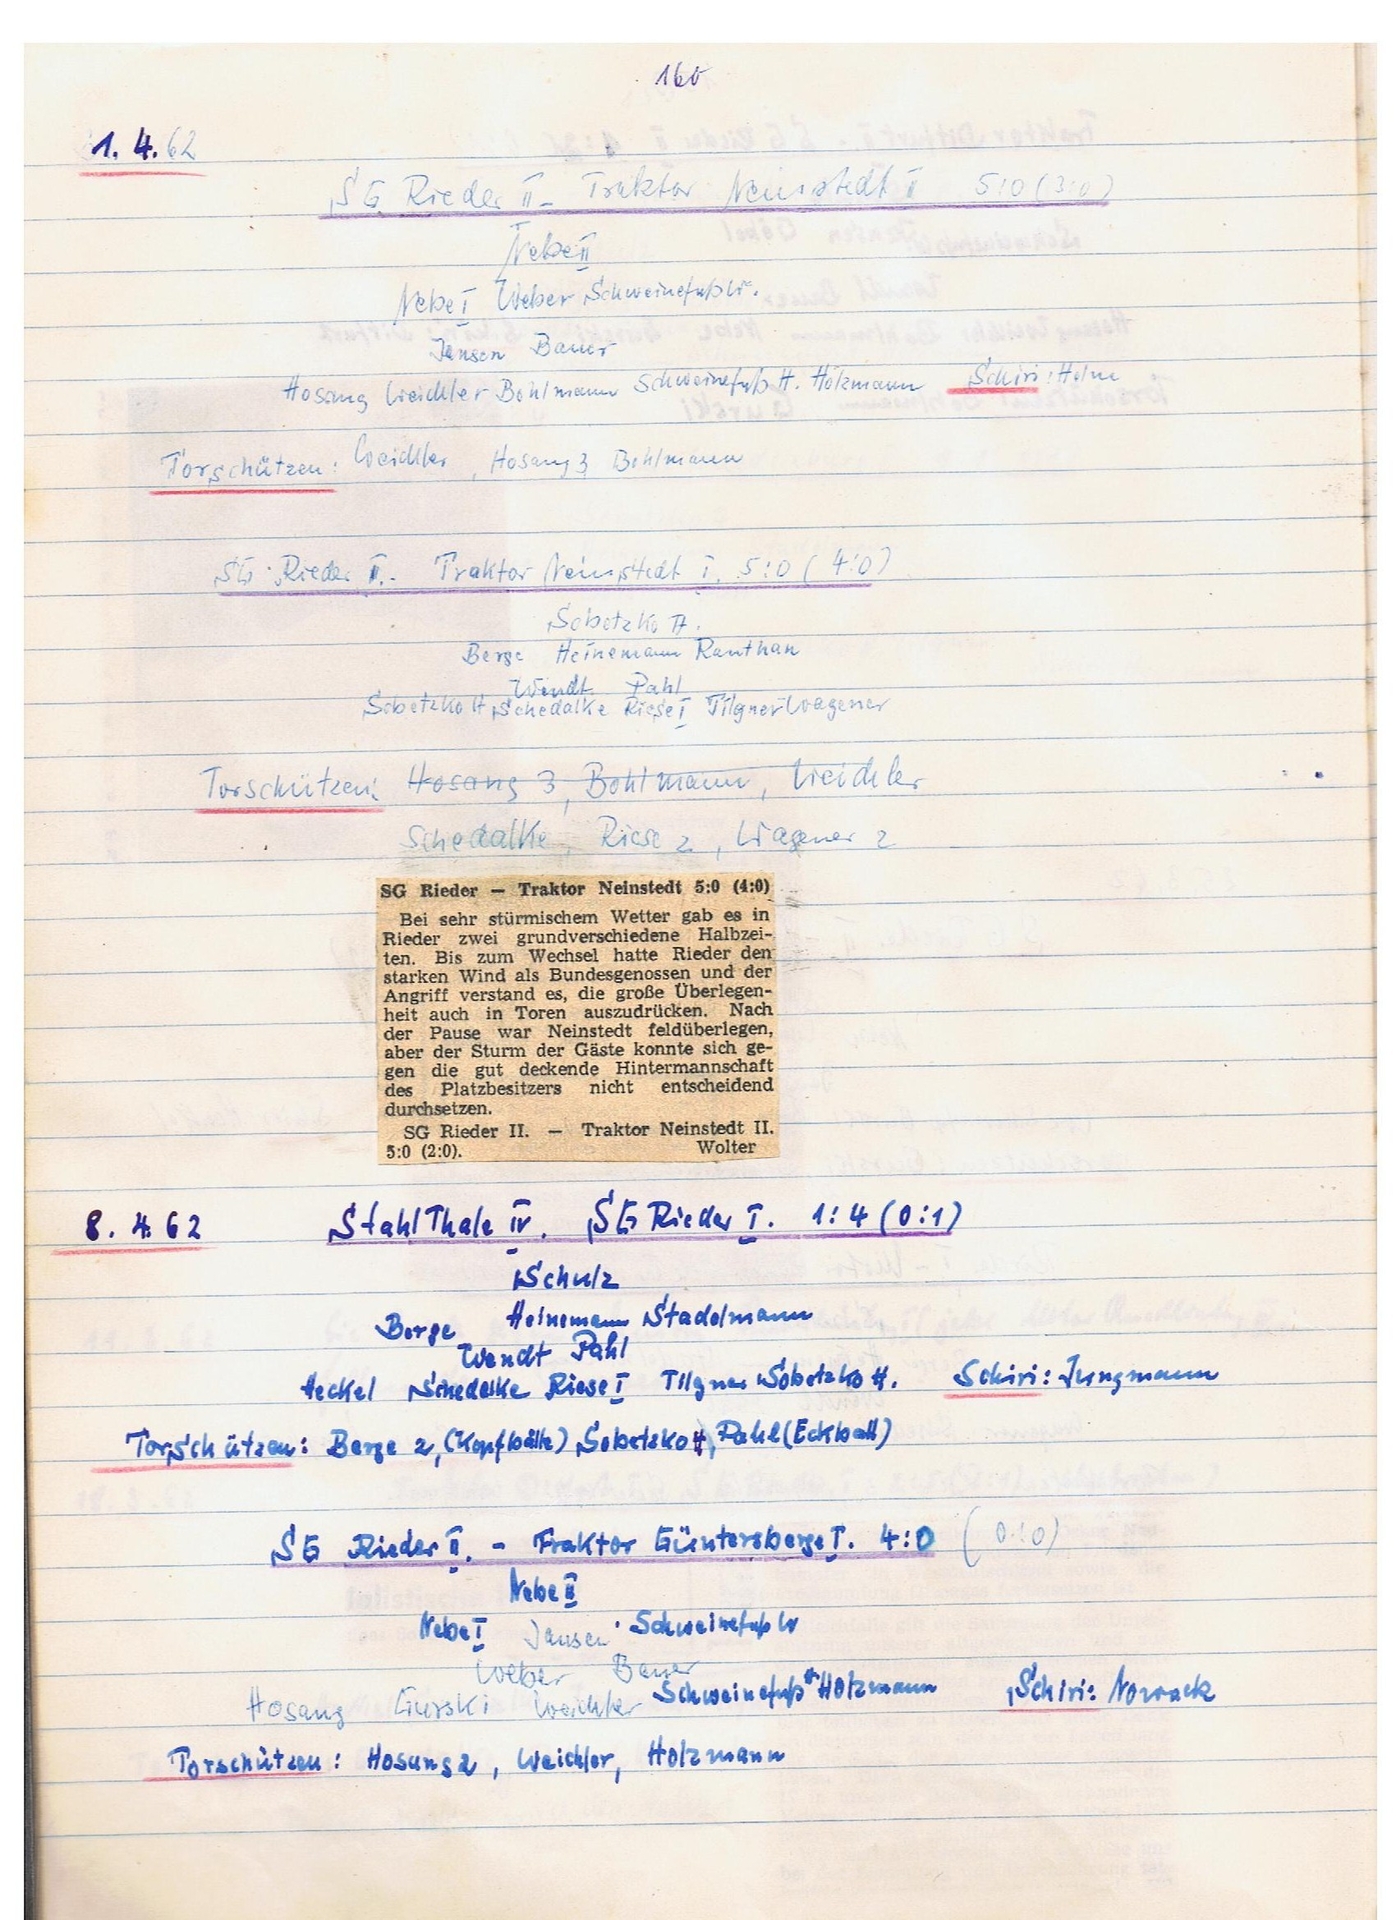 160
1. 4. 62
SG Rieder II – Traktor Neinstedt II 5:0 (3:0)
Nebe II
Nebe I Weber Schweinefuß W.
Jansen Bauer
Hosang Weichler Bohlmann Schweinefuß H. Holzmann Schiri: Holm
Torschützen: Weichler, Hosang 3, Bohlmann
SG Rieder I. - Traktor Neinstedt I. 5:0 (4:0)
Sobotzko H.
Berge Heinemann Ranthan
Wendt Pahl
Sobotzko H Schedalke Riese I Tilgner Wagener
Torschützen: Hosang 3, Bohlmann, Weichler
Schedalke, Riese 2, Wagener 2
SG Rieder — Traktor Neinstedt 5:0 (4:0)
Bei sehr stürmischem Wetter gab es in
Rieder zwei grundverschiedene Halbzei-
ten. Bis zum Wechsel hatte Rieder den
starken Wind als Bundesgenossen und der
Angriff verstand es, die große Überlegen-
heit auch in Toren auszudrücken. Nach
der Pause war Neinstedt feldüberlegen,
aber der Sturm der Gäste konnte sich ge-
gen die gut deckende Hintermannschaft
des Platzbesitzers nicht entscheidend
durchsetzen.
SG Rieder II. — Traktor Neinstedt II.
5:0 (2:0). Wolter
8. 4. 62 Stahl Thale IV. SG Rieder I. 1:4 (0:1)
Schulz
Berge Heinemann Stadelmann
Wendt Pahl
Heckel Schedalke Riese I Tilgner Sobotzko H. Schiri: Jungmann
Torschützen: Berge 2, (Kopfbälle) Sobotzko H, Pahl (Eckball)
SG Rieder II. - Traktor Güntersberge I. 4:0 (0:0)
Nebe II
Nebe I Jansen Schweinefuß W
Weber Bauer
Hosang Gurski Weichler Schweinefuß H Holzmann Schiri: Nowack
Torschützen: Hosang 2, Weichler, Holzmann